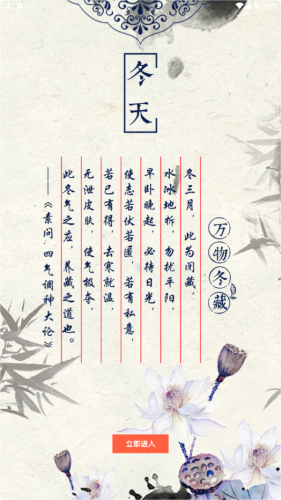 冬天
万物冬藏
冬三月，此为闭藏，
水冰地坼，勿扰乎阳，
早卧晚起，必待日光，
使志若伏若匿，若有私意，
若已有得，去寒就温，
无泄皮肤，使气极夺，
此冬气之应，养藏之道也。
——《素问·四气调神大论》
立即进入